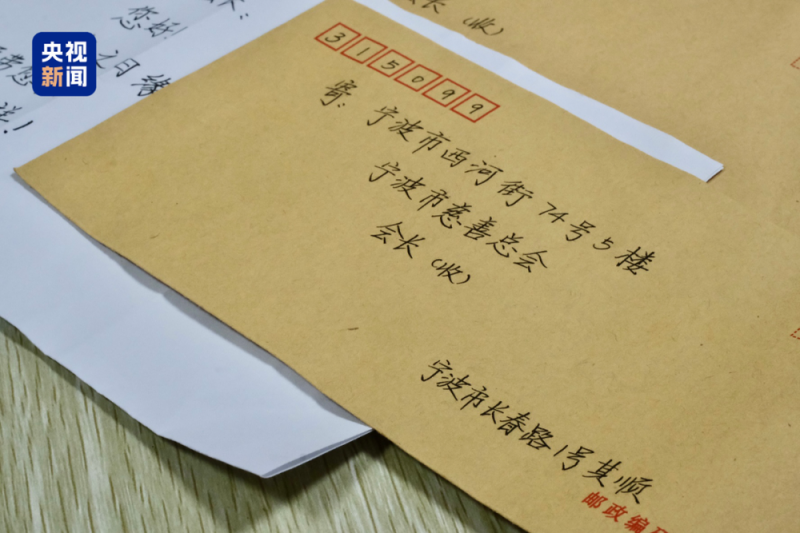 央视
新闻
您好!
315099
寄:宁波市西河街74号5楼
宁波市慈善总会
会长(收)
宁波市长春路1号其顺
邮政编码
会长(收)